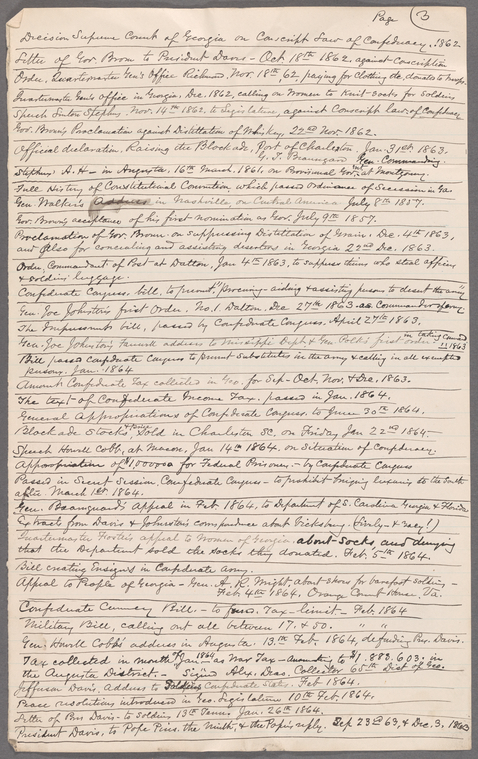 Page 3
Decision Supreme Court of Georgia on Conscript Law of Confederacy, 1862
Letter of Gov. Brown to President Davis - Oct 18th 1862, against Conscription
Order, Quartermaster Gen's Office Richmond, Nov 18th, 62, paying for clothing &c, donated to troops.
Quartermaster Gen's office in Georgia, Dec. 1862, calling on Women to Knit-socks for soldiers
Speech Linton Stephens, Nov. 14th 1862, to Legislature, against Conscript law of Confedcy
Gov. Brown's Proclamation against Distillation of Whiskey, 22nd Nov. 1862.
Official declaration, Raising the Blockade, Port of Charleston, Jan. 31st 1863.
G. T. Beauregard Gen. Commanding
Stephens A. H. - in Augusta, 16th March, 1861, on Provisional Gov. at Montgomy.
Full History of Constitutional Convention, which passed Ordinance of Secession in Ga
Gen Walker's Address in Nashville, on Central America July 8th 1857.
Gov. Brown's acceptance of his first nomination as Gov. July 9th 1857.
Proclamation of Gov. Brown on suppressing Distillation of Grain, Dec. 4th 1863,
and also for concealing and assisting deserters in Georgia 22nd Dec. 1863.
Order, Commandant of Post at Dalton, Jan 4th 1863, to suppress thieves who steal officers
& soldiers luggage.
Confederate Congress, bill, to prevent, "procuring - aiding & assisting persons to desert the army"
Gen. Joe Johnston's first Order, No. 1 Dalton, Dec 27th 1863 - as Commander of army
The Impressment bill, passed by Confederate Congress, April 27th 1863.
Gen. Joe Johnston's Farewell address to Mississippi Dept. & Gen Cobb's first order in taking Comd 1863
Bill passed Confederate Congress to prevent Substitutes in the army & calling in all exempted
persons. Jan. 1864
Amount Confederate Tax collected in Geo. for Sep - Oct, Nov. & Dec. 1863.
The text of Confederate Income Tax, passed in Jan. 1864.
General Appropriations of Confederate Congress to June 30th 1864.
Blockade Stocks Sold in Charleston SC. on Friday Jan 22nd 1864 -
Speech Howell Cobb, at Macon, Jan 14th 1864, on Situation of Confederacy.
Appropriation of for Federal Prisoners - by Confederate Congress
Passed in Secret Session Confederate Congress - to prohibit Foreign luxuries to the South
after March 1st 1864.
Gen. Beauregard's Appeal in Feb. 1864, to Department of S. Carolina, Georgia & Florida
Extract from Davis & Johnston's correspondence about Vicksburg (lively & racy!)
Quartermaster appeal to Women of Georgia about socks and denying
that the Department sold the socks they donated. Feb. 5th 1864.
Bill creating Ensigns in Confederate army.
Appeal to People of Georgia - Gen. A. R. Wright, about shoes for barefoot soldiers -
Feb. 4th 1864, Orange Court House, Va.
Confederate Currency Bill. - to fund, Tax - limit - Feb. 1864
Military Bill, calling out all between 17, & 50. " "
Gen. Howell Cobb's address in Augusta. 13th Feb. 1864, defending Pres. Davis.
Tax collected in month of Jany 1864 as War Tax - Amounting to $1,883,603. in
the Augusta District. - Signed Alex. Deas. Collector 65th Dist of Geo.
Jefferson Davis, Address to Soldiers Confederate States. Feb. 1864.
Peace resolutions introduced in Geo. Legislature. 10th Feb. 1864.
Letter of Pres Davis - to Soldiers 13th Tenn. Jan. 26th 1864.
President Davis, to Pope Pius, the Ninth, & the Pope's reply. Sep 23rd 63, & Dec. 3, 1863